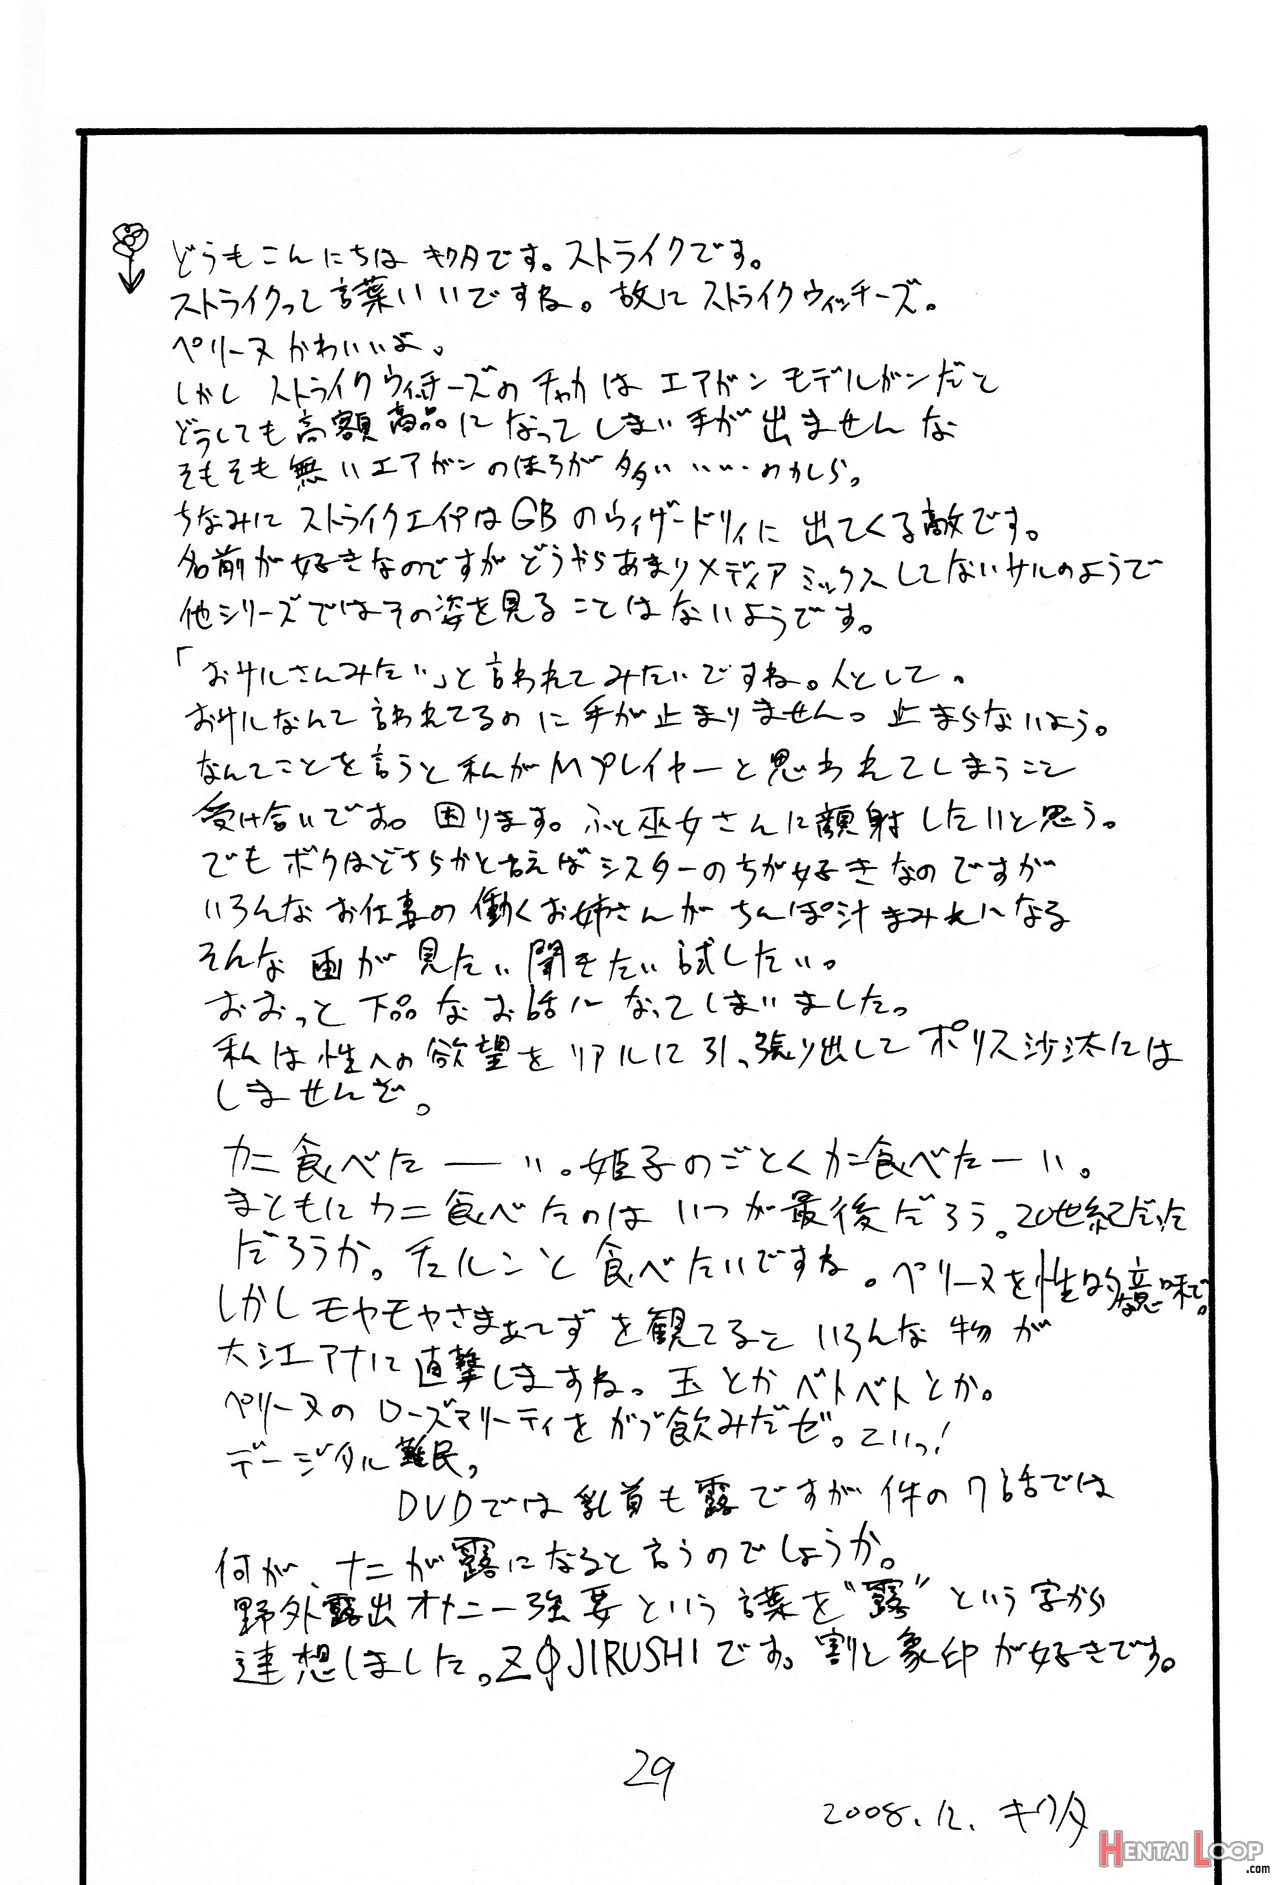 どうもこんにちは キクタです。ストライクです。
ストライクって言葉いいですね。故にストライクウィッチーズ。
ペリーヌかわいいよ。
しかしストライクウィッチーズのチャカはエアガンモデルガンだと
どうしても高額商品になってしまい手が出ませんな
そもそも無いエアガンのほうが多い……のかしら。
ちなみにストライクエイプはGBのウィザードリィに出てくる敵です。
名前が好きなのですがどうやらあまりメディアミックスしてないサルのようで
他シリーズではその姿を見ることはないようです。
「おサルさんみたい」と言われてみたいですね。人として。
おサルなんて言われてるのに手が止まりません。止まらないよう。
なんてことを言うと私がMプレイヤーと思われてしまうこと
受け合いです。困ります。ふと巫女さんに顔射したいと思う。
でもボクはどちらかと言えばシスターのちが好きなのですが
いろんなお仕事の働くお姉さんがちんぽ汁まみれになる
そんな画が見たい聞きたい試したい。
おおっと下品なお話になってしまいました。
私は性への欲望をリアルに引っ張り出してポリス沙汰には
しませんぞ。
カニ食べたーい。姫子のごとくカニ食べたーい。
まともにカニ食べたのはいつが最後だろう。20世紀だった
だろうか。チュルンと食べたいですね。ペリーヌを性的な意味で。
しかしモヤモヤさまぁ~ずを観てるといろんな物が
大江アナに直撃しますね。玉とかベトベトとか。
ペリーヌのローズマリーティをがぶ飲みだゼ。こいっ!
デージタル難民。
DVDでは乳首も露ですが件の7話では
何が、ナニが露になると言うのでしょうか。
野外露出オナニー強要という言葉を“露”という字から
連想しました。ZOJIRUSHIです。割と象印が好きです。
29
2008.12. キクタ
HENTAI LOOP
.com